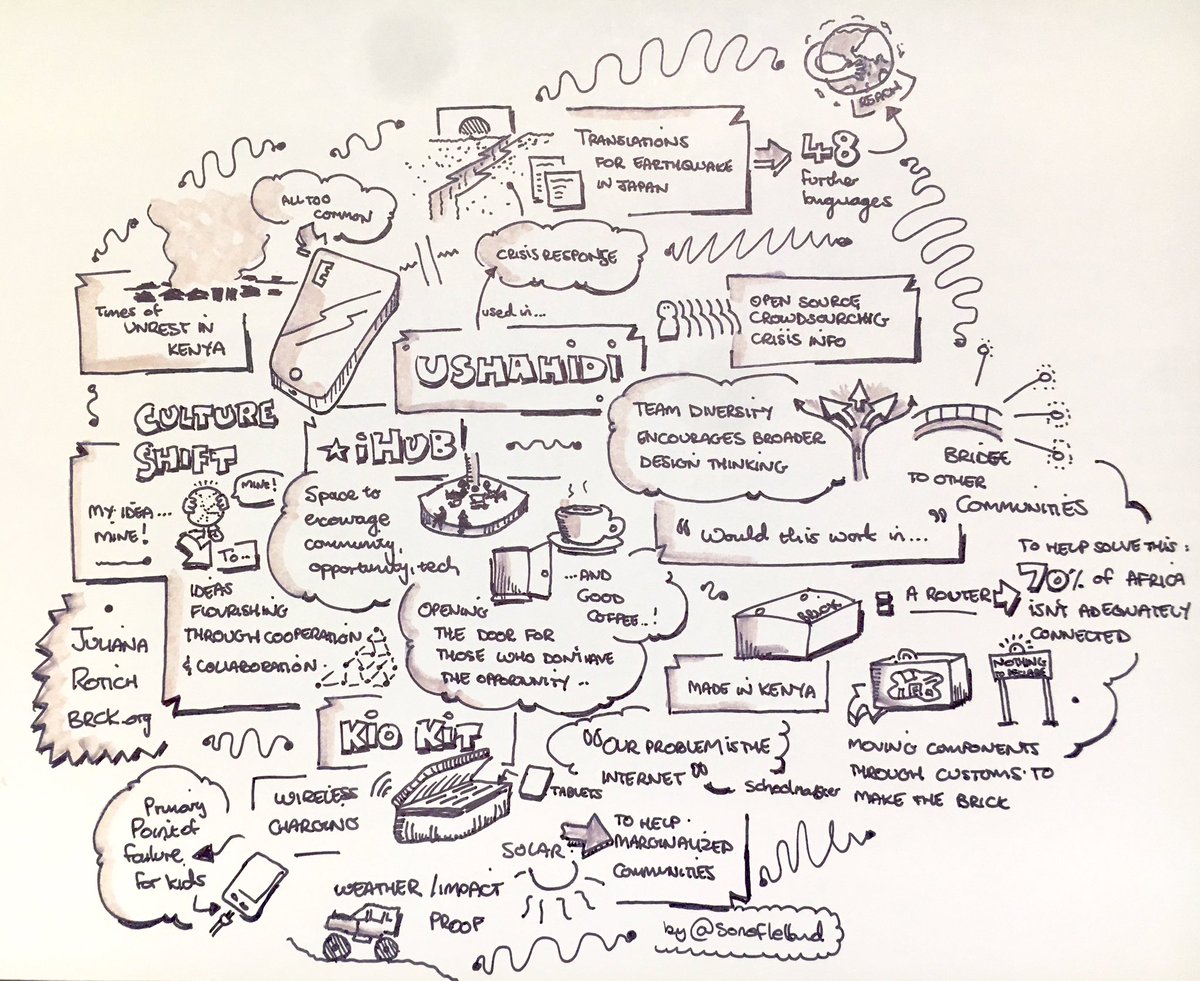 REACH
TRANSLATIONS
FOR EARTHQUAKE
IN JAPAN
48
further
languages
ALL TOO
COMMON
CRISIS RESPONSE
used in...
Times of
UNREST IN
KENYA
E
USHAHIDI
OPEN SOURCE
CROWDSOURCING
CRISIS INFO
CULTURE
SHIFT
MY IDEA...
MINE!
MINE!
TO...
IDEAS
FLOURISHING
THROUGH COOPERATION
& COLLABORATION
★ iHUB
Space to
encourage
community,
opportunity, tech
TEAM DIVERSITY
ENCOURAGES BROADER
DESIGN THINKING
BRIDGE
TO OTHER
COMMUNITIES
"Would this work in... "
OPENING
THE DOOR FOR
THOSE WHO DON'T HAVE
THE OPPORTUNITY ..
...AND
GOOD
COFFEE..!
BRCK
= A ROUTER
TO HELP SOLVE THIS:
70% OF AFRICA
ISN'T ADEQUATELY
CONNECTED
MADE IN KENYA
NOTHING
TO DECLARE
MOVING COMPONENTS
THROUGH CUSTOMS TO
MAKE THE BRICK
JULIANA
ROTICH
BRCK.org
KIO KIT
WIRELESS
CHARGING
TABLETS
"OUR PROBLEM IS THE
INTERNET"
schoolmaster
Primary
Point of
failure
for kids
SOLAR
TO HELP
MARGINALIZED
COMMUNITIES
WEATHER/IMPACT
PROOF